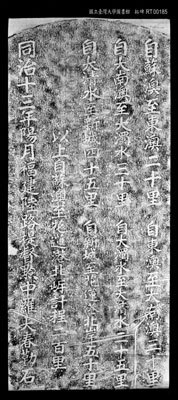 國立臺灣大學圖書館 拓碑 RT00185
自蘇澳至東澳二十里 自東澳至大南澳三十里
自大南澳至大濁水三十里 自大濁水至大清水二十五里
自大清水至新城四十五里 自新城至花蓮港北岸五十里
以上自蘇澳至花蓮港北岸計程二百里
同治十三年陽月福建陸路提督黔中羅大春勒石